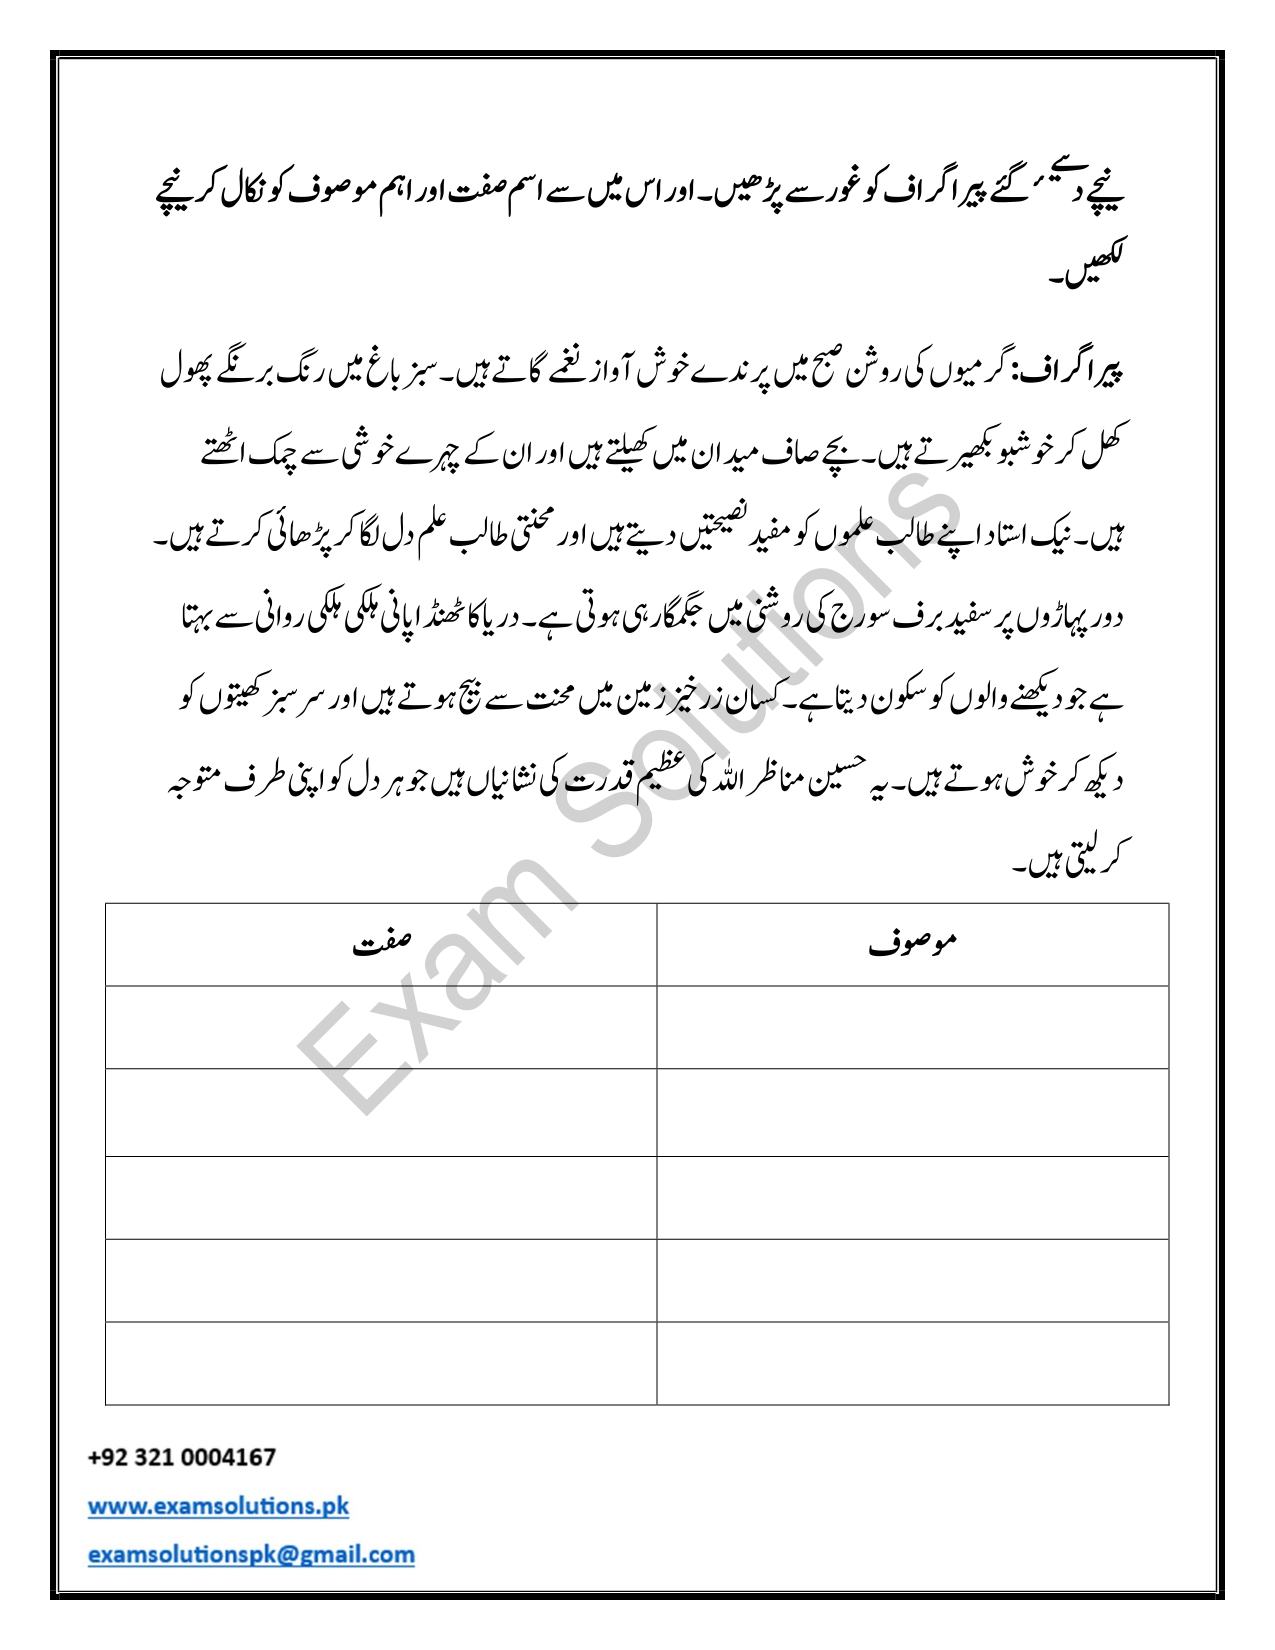 نیچے دیے ٴ گئے پیراگراف کو غور سے پڑھیں۔ اور اس میں سے اسم صفت اور اہم موصوف کو نکال کر نیچے
لکھیں۔
پیراگراف: گرمیوں کی روشن صبح میں پرندے خوش آواز نغمے گاتے ہیں۔ سبز باغ میں رنگ برنگے پھول
کھل کر خوشبو بکھیرتے ہیں۔ بچے صاف میدان میں کھیلتے ہیں اور ان کے چہرے خوشی سے چمک اٹھتے
ہیں۔ نیک استاد اپنے طالب علموں کو مفید نصیحتیں دیتے ہیں اور محنتی طالب علم دل لگا کر پڑھائی کرتے ہیں۔
دور پہاڑوں پر سفید برف سورج کی روشنی میں جگمگا رہی ہوتی ہے۔ دریا کا ٹھنڈا پانی ہلکی ہلکی روانی سے بہتا
ہے جو دیکھنے والوں کو سکون دیتا ہے۔ کسان زرخیز زمین میں محنت سے بیج بوتے ہیں اور سرسبز کھیتوں کو
دیکھ کر خوش ہوتے ہیں۔ یہ حسین مناظر اللہ کی عظیم قدرت کی نشانیاں ہیں جو ہر دل کو اپنی طرف متوجہ
کر لیتی ہیں۔
موصوف صفت
Exam Solutions
+92 321 0004167
www.examsolutions.pk
examsolutionspk@gmail.com